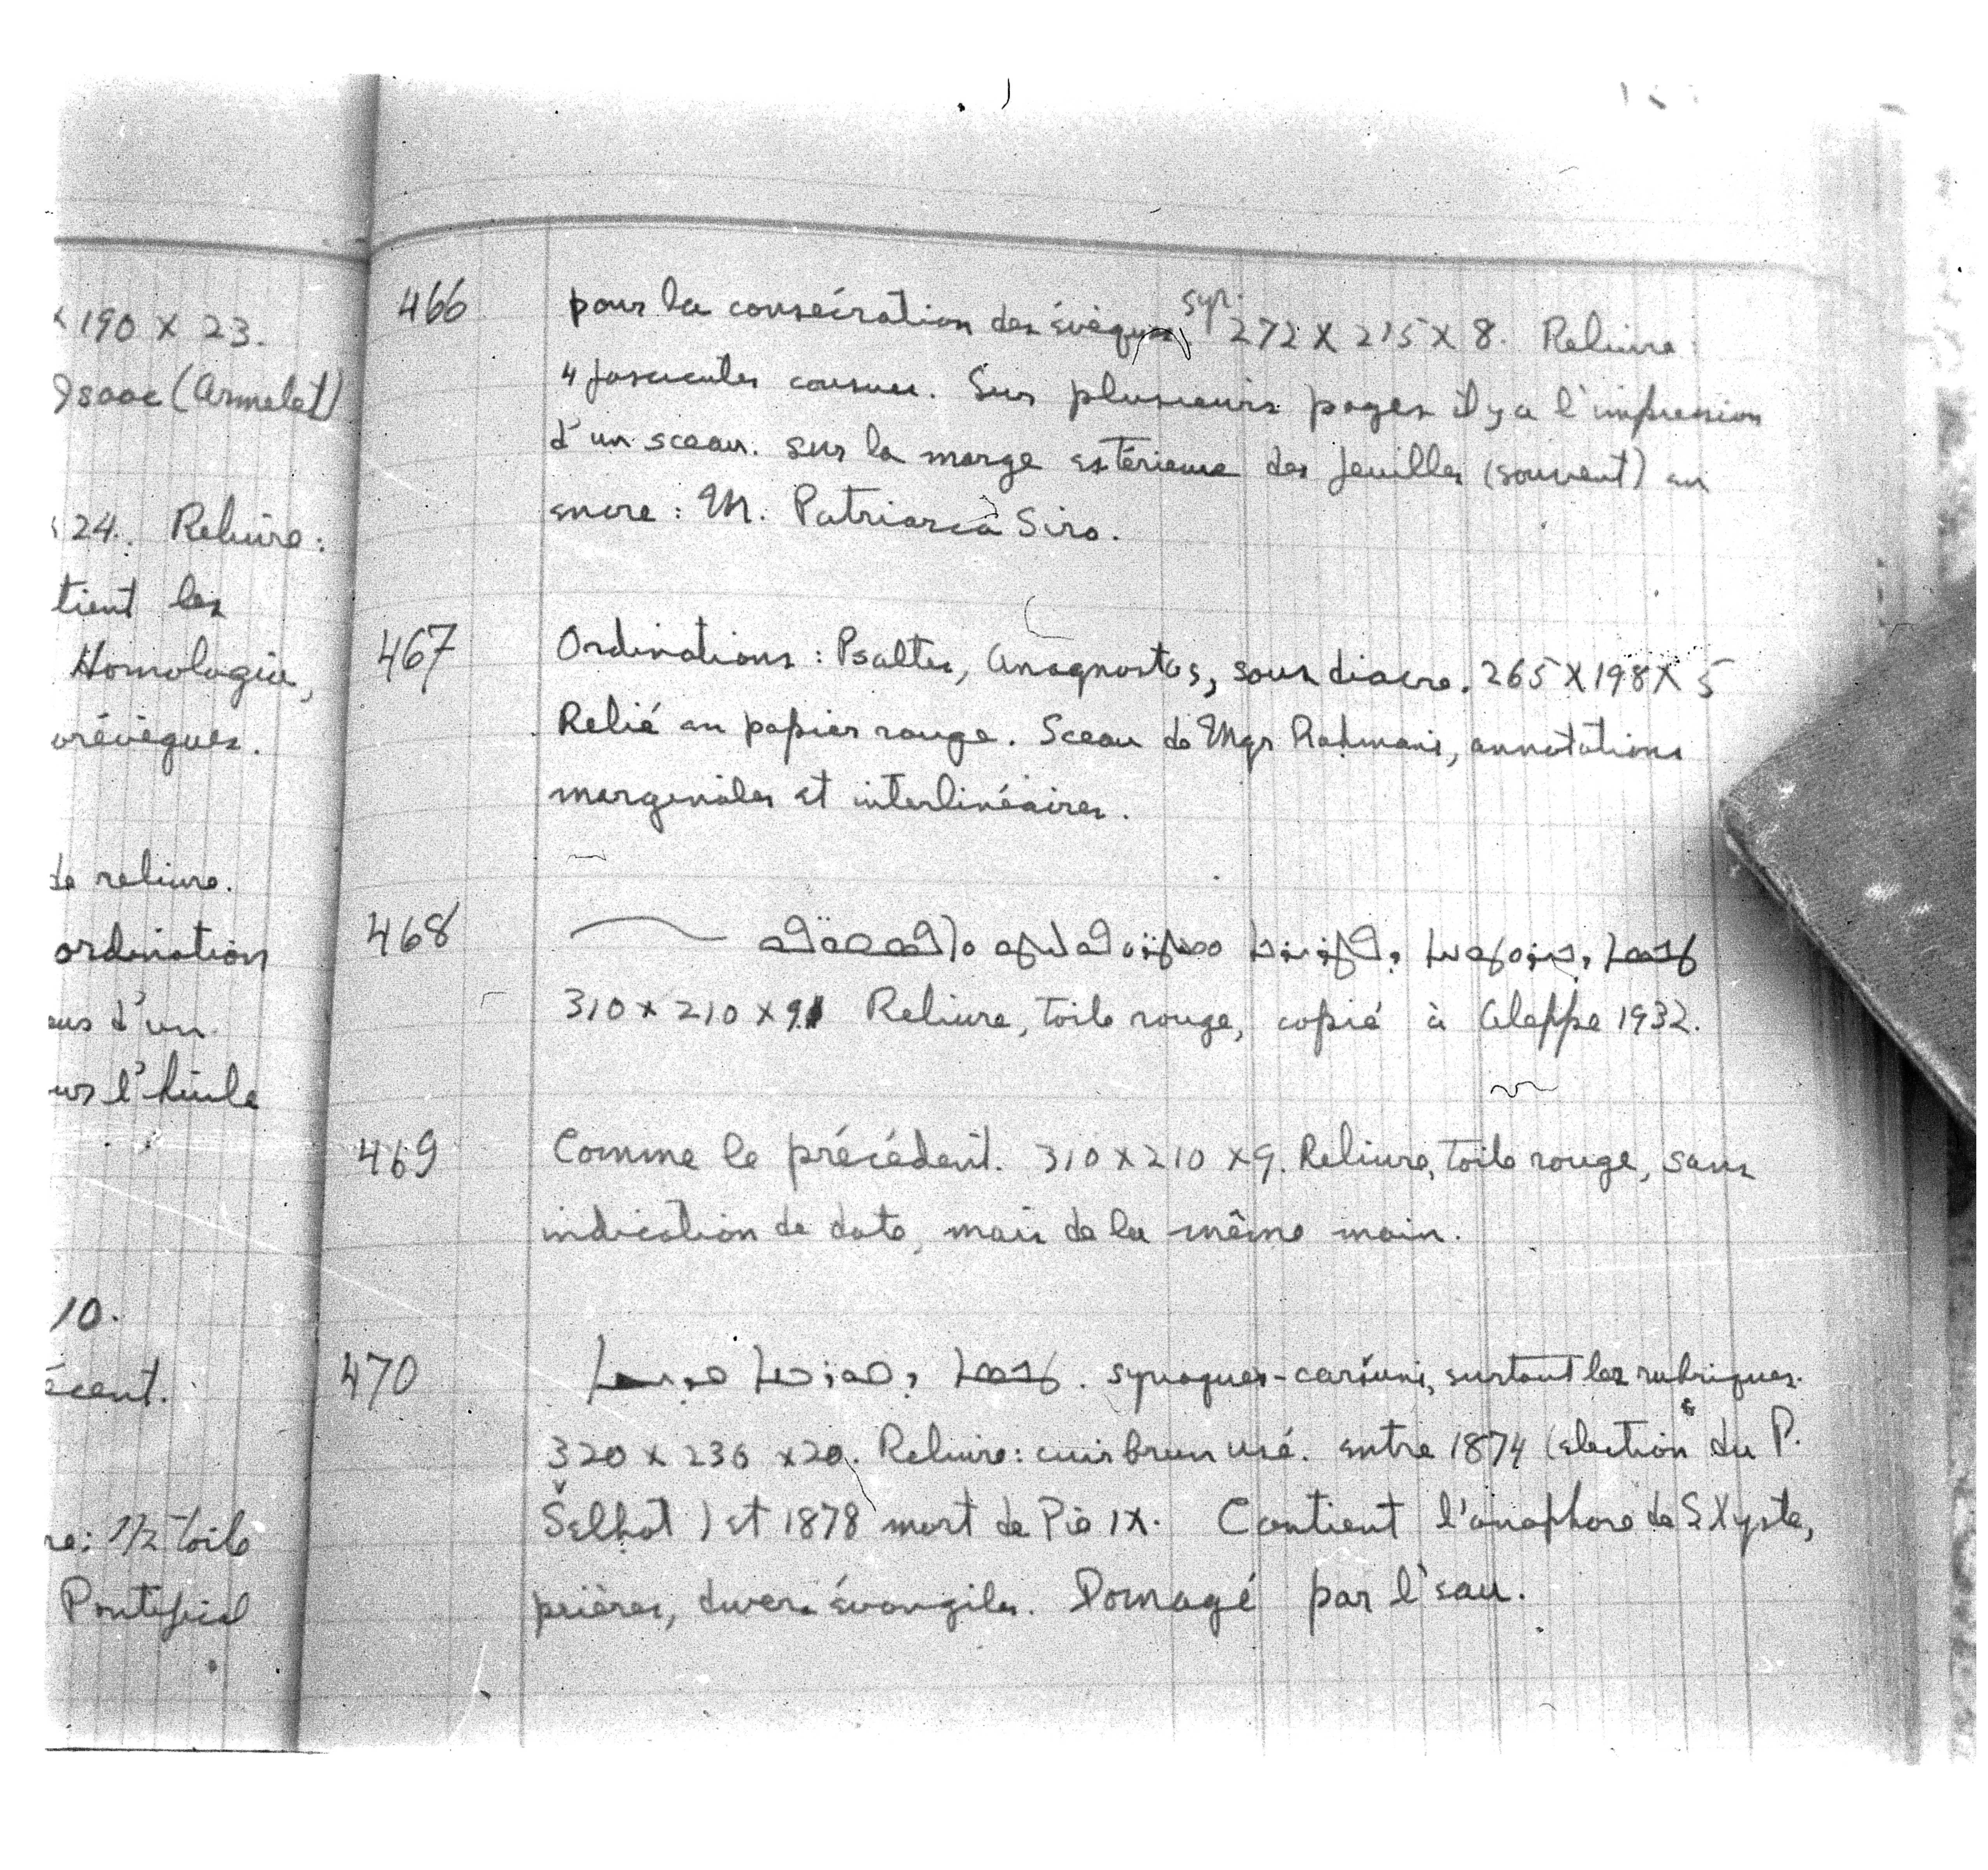 x 190 x 23.
Isaac (Armalet)
24. Reliure:
tient les
Homologia,
orévêques.
de reliure.
ordination
d'un
l'huile
10.
écent.
re: 1/2 toile
Pontifical
466 pour la consécration des évêques. syr. 272 x 215 x 8. Reliure
4 fascicules cousus. Sur plusieurs pages il y a l'impression
d'un sceau. sur la marge extérieure des feuilles (souvent) en
encre: M. Patriarca Siro.
467 Ordinations: Psaltes, Anagnostes, sous diacre. 265 x 198 x 5
Relié en papier rouge. Sceau de Mgr Rahmani, annotations
marginales et interlinéaires.
468
310 x 210 x 9 Reliure, toile rouge, copié à Aleppe 1932.
469 Comme le précédent. 310 x 210 x 9. Reliure, toile rouge, sans
indication de date, mais de la même main.
470 ܛܟܣܐ ܕܩܘܪܒܐ . syriaques-caršuni, surtout les rubriques.
320 x 236 x 20. Reliure: cuir brun usé. entre 1874 (election du P.
Šelhot) et 1878 mort de Pie IX. Contient l'anaphore de S Xyste,
prières, divers évangiles. Domagé par l'eau.